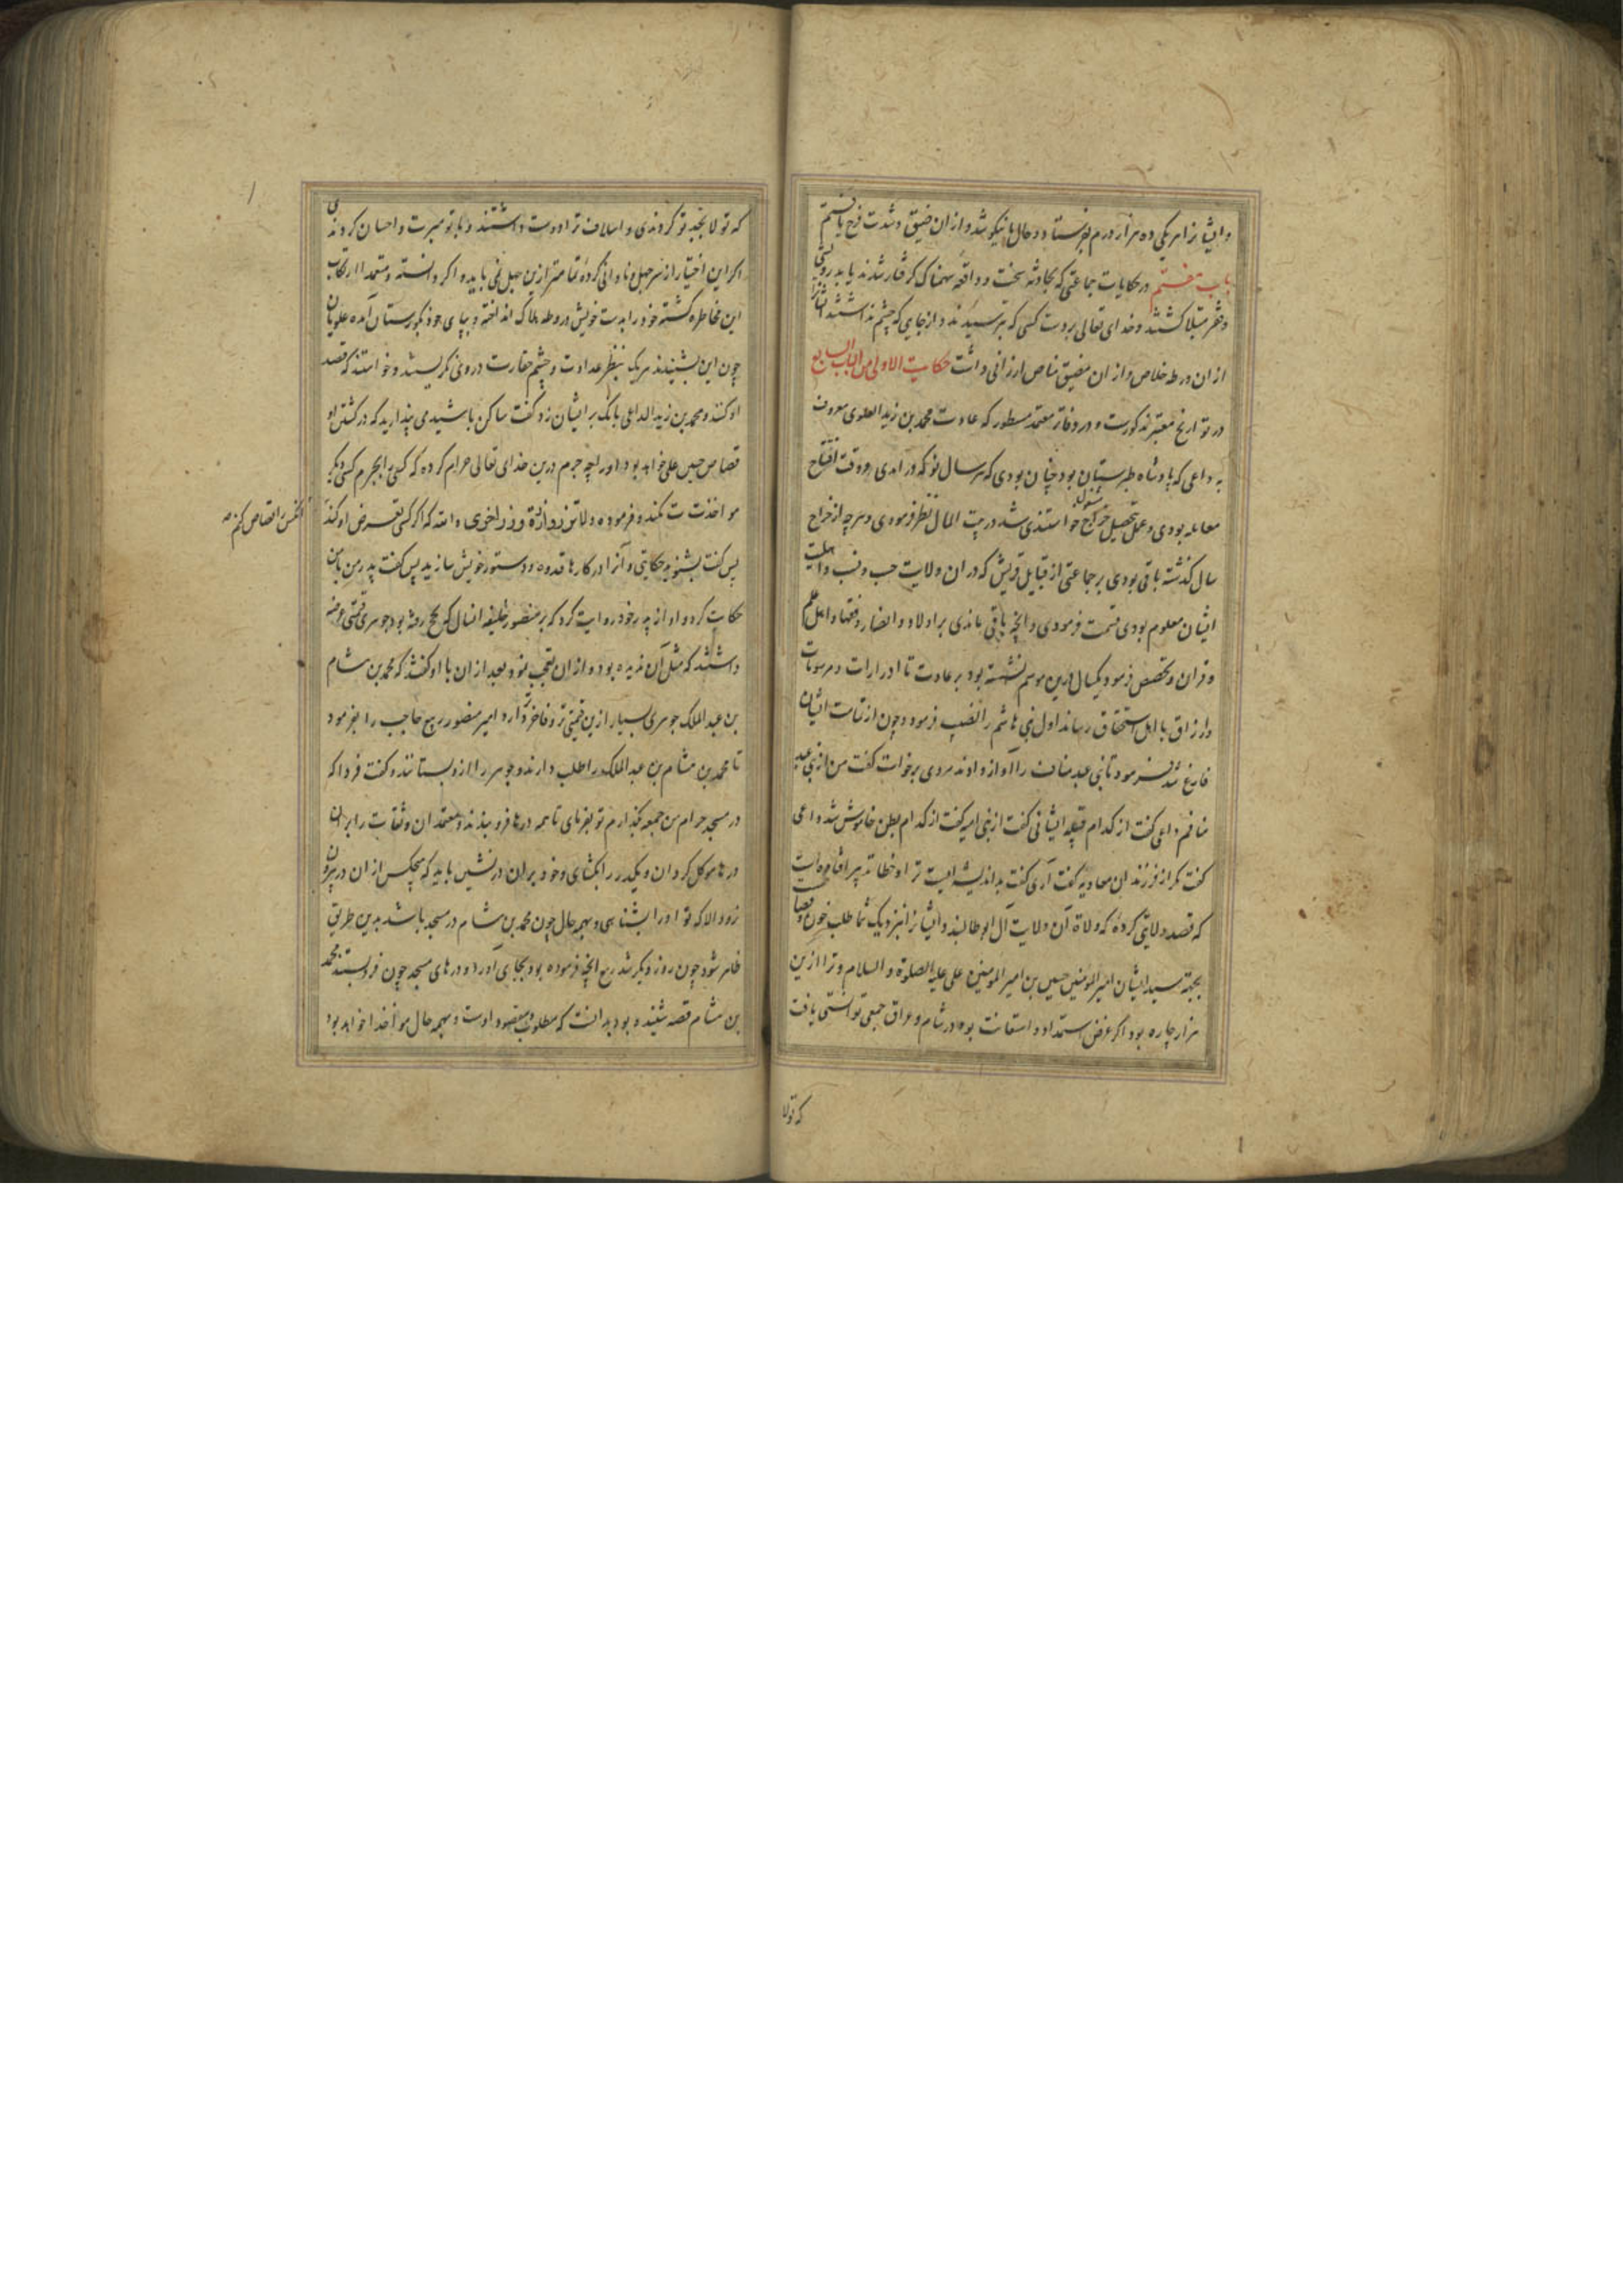 و ایشانرا هریکی ده هزار درم بفرستاد و حال ما نیکو شد و از ان ضیق و شدت فرج یافتیم
باب هفتم در حکایات جماعتی که بحادثه سخت و واقعه سهمناک گرفتار شدند یا بدرویشی
و فقر مبتلا کشتند و خدای تعالی بر دست کسی که بترسیدند و از جایی که چشم نداشتند ایشانرا
از ان ورطه خلاص و از ان مضیق مناص ارزانی داشت حکایت الاولی من الباب السابع
در تواریخ معتبر مذکورست و در دفاتر معتمد مسطور که عادت محمد بن زید العلوی معروف
به داعی که پادشاه طبرستان بود چنان بودی که هر سال نو که درامدی و وقت افتتاح
معامله بودی و عمل تحصیل خراج خواستندی شد در بیت المال نظر فرمودی و هرچه از خراج
مشغول
سال گذشته باقی بودی بر جماعتی از قبایل قریش که در ان ولایت حسب و نسب و اهلیت
ایشان معلوم بودی قسمت فرمودی و انچه باقی ماندی بر اولاد و انصار و فقها و اهل علم
و قران و تخصص فرمود یکسال درین موسم نشسته بود بر عادت تا ادرارات و مرسومات
و ارزاق با اهل استحقاق رساند اول بنی هاشم را نصیب فرمود و چون از ایشان
فارغ شد بفرمود تا بنی عبد مناف را آواز دادند مردی برخواست گفت من از بنی عبد
منافم داعی گفت از کدام قبیله ایشانی گفت از بنی امیه گفت از کدام بطن خاموش شد داعی
گفت مگر از فرزندان معاویه گفت آری گفت بد اندیشه ایست ترا و خطا تدبیر افتاده است
که قصد ولایتی کرده که ولاة آن ولایت آل ابوطالبند و ایشانرا نزدیک شما طلب خون و قصاص
بجهة سید ایشان امیر المومنین حسین بن امیر المومنین علی علیه الصلوة و السلام و ترا ازین
هزار چاره بود اگر غرض استمداد و استعانت بود در شام و عراق جمعی توانستی یافت
که تولا
که تولا بجد تو کردندی و اسلاف ترا دوست داشتند و با تو مبرت و احسان کردندی
اگر این اختیار از سر جهل و نادانی کرده تمامتر ازین جهل نمی باید و اگر دانسته و متعمدا ارتکاب
این مخاطره گشته خود را بدست خویش در ورطه هلاک انداخته و بپای خود بگورستان آمده علویان
چون این بشنیدند هریک بنظر عداوت و چشم حقارت در وی نگریستند و خواستند که قصد
او کنند و محمد بن زید الداعی بانک بر ایشان زد و گفت ساکن باشید می پندارید که در کشتن او
قصاص حسین علی خواهد بود او را چه جرم درین خدای تعالی حرام کرده که کسی را بجرم کسی دیگر
مواخذت کنند و فرموده و لا تزر وازرة وزر اخری و الله که اگر کسی تعرض او کند
انکس را قصاص کنم
پس گفت بشنوید حکایتی و آنرا در کارها قدوه و دستور خویش سازید پس گفت پدر من با من
حکایت کرد و او از پدر خود روایت کرد که بر منصور خلیفه انسال که بحج رفته بود جوهری قیمتی عرضه
داشتند که مثل آن ندیده بود و از ان تعجب نمود بعد از ان با او گفتند که محمد بن هشام
بن عبد الملک جوهری بسیار ازین قیمتی تر و فاخرتر دارد امیر منصور ربیع حاجب را بفرمود
تا محمد بن هشام بن عبد الملک را طلب دارند و جوهر را ازو بستانند و گفت فردا که
در مسجد حرام من جمعه بگذارم تو بفرمای تا همه درها فرو بندند و معتمدان و ثقات را بران
درها موکل کردان و یکدر را بکشای و خود بران در نشین باید که هیچکس از ان در بیرون
نرود الا که تو او را بشناسی و بهمه حال چون محمد بن هشام در مسجد باشد بدین طریق
ظاهر شود چون روز دیگر شد ربیع انچه فرموده بود بجای آورد و درهای مسجد چون فرو بستند محمد
بن هشام قصه شنیده بود بدانست که مطلوب و مقصود اوست و بهمه حال مواخذ خواهد بود